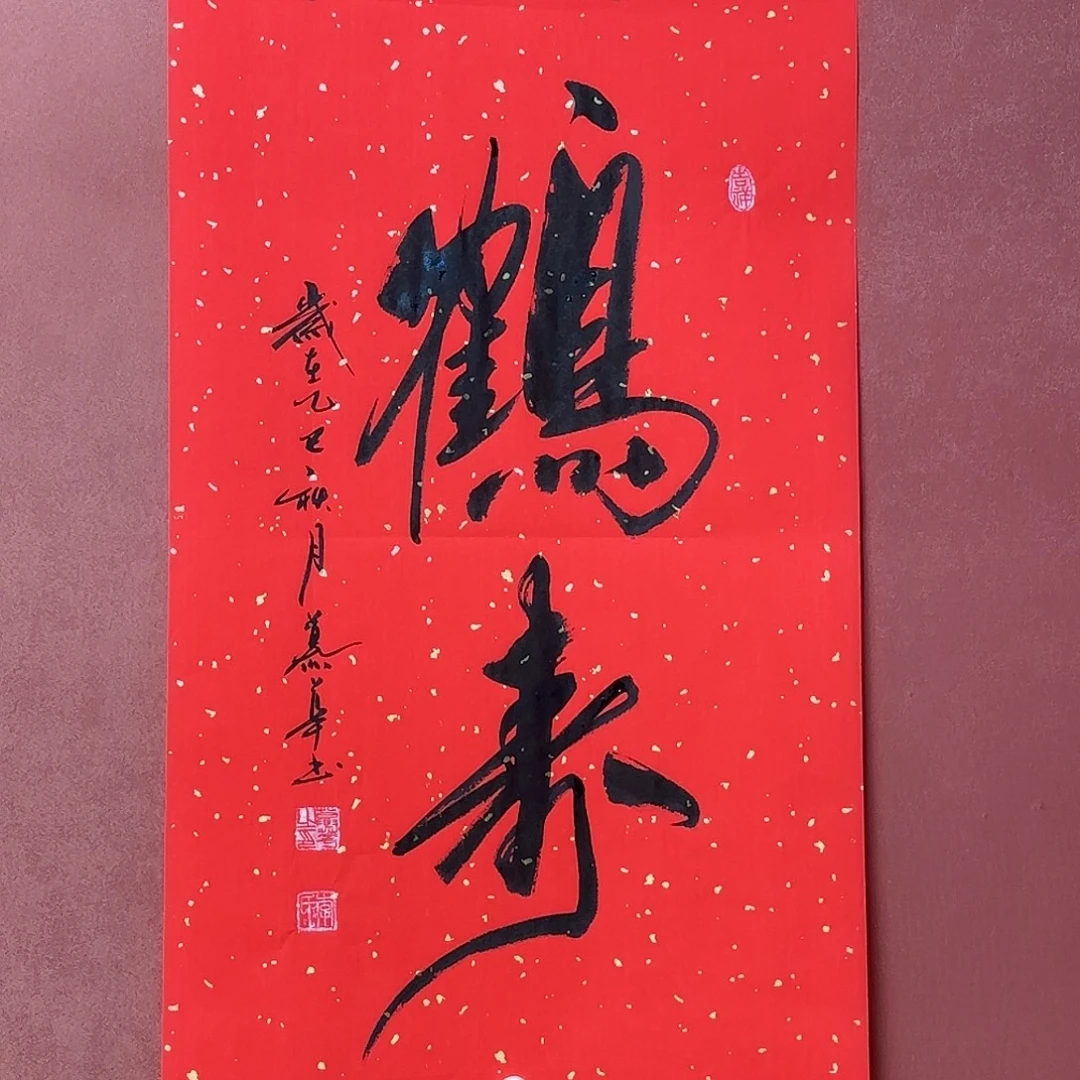 鶴壽
歲在乙巳秋月慕華書
吉祥